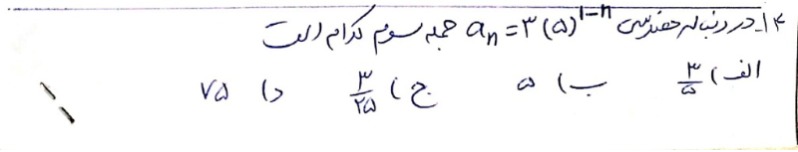 ۱۴ـ در دنباله هندسی aₙ = ۳(۵)^{۱-n} جمله سوم کدام است
الف) ۳/۵ ب) ۵ ج) ۳/۲۵ د) ۷۵